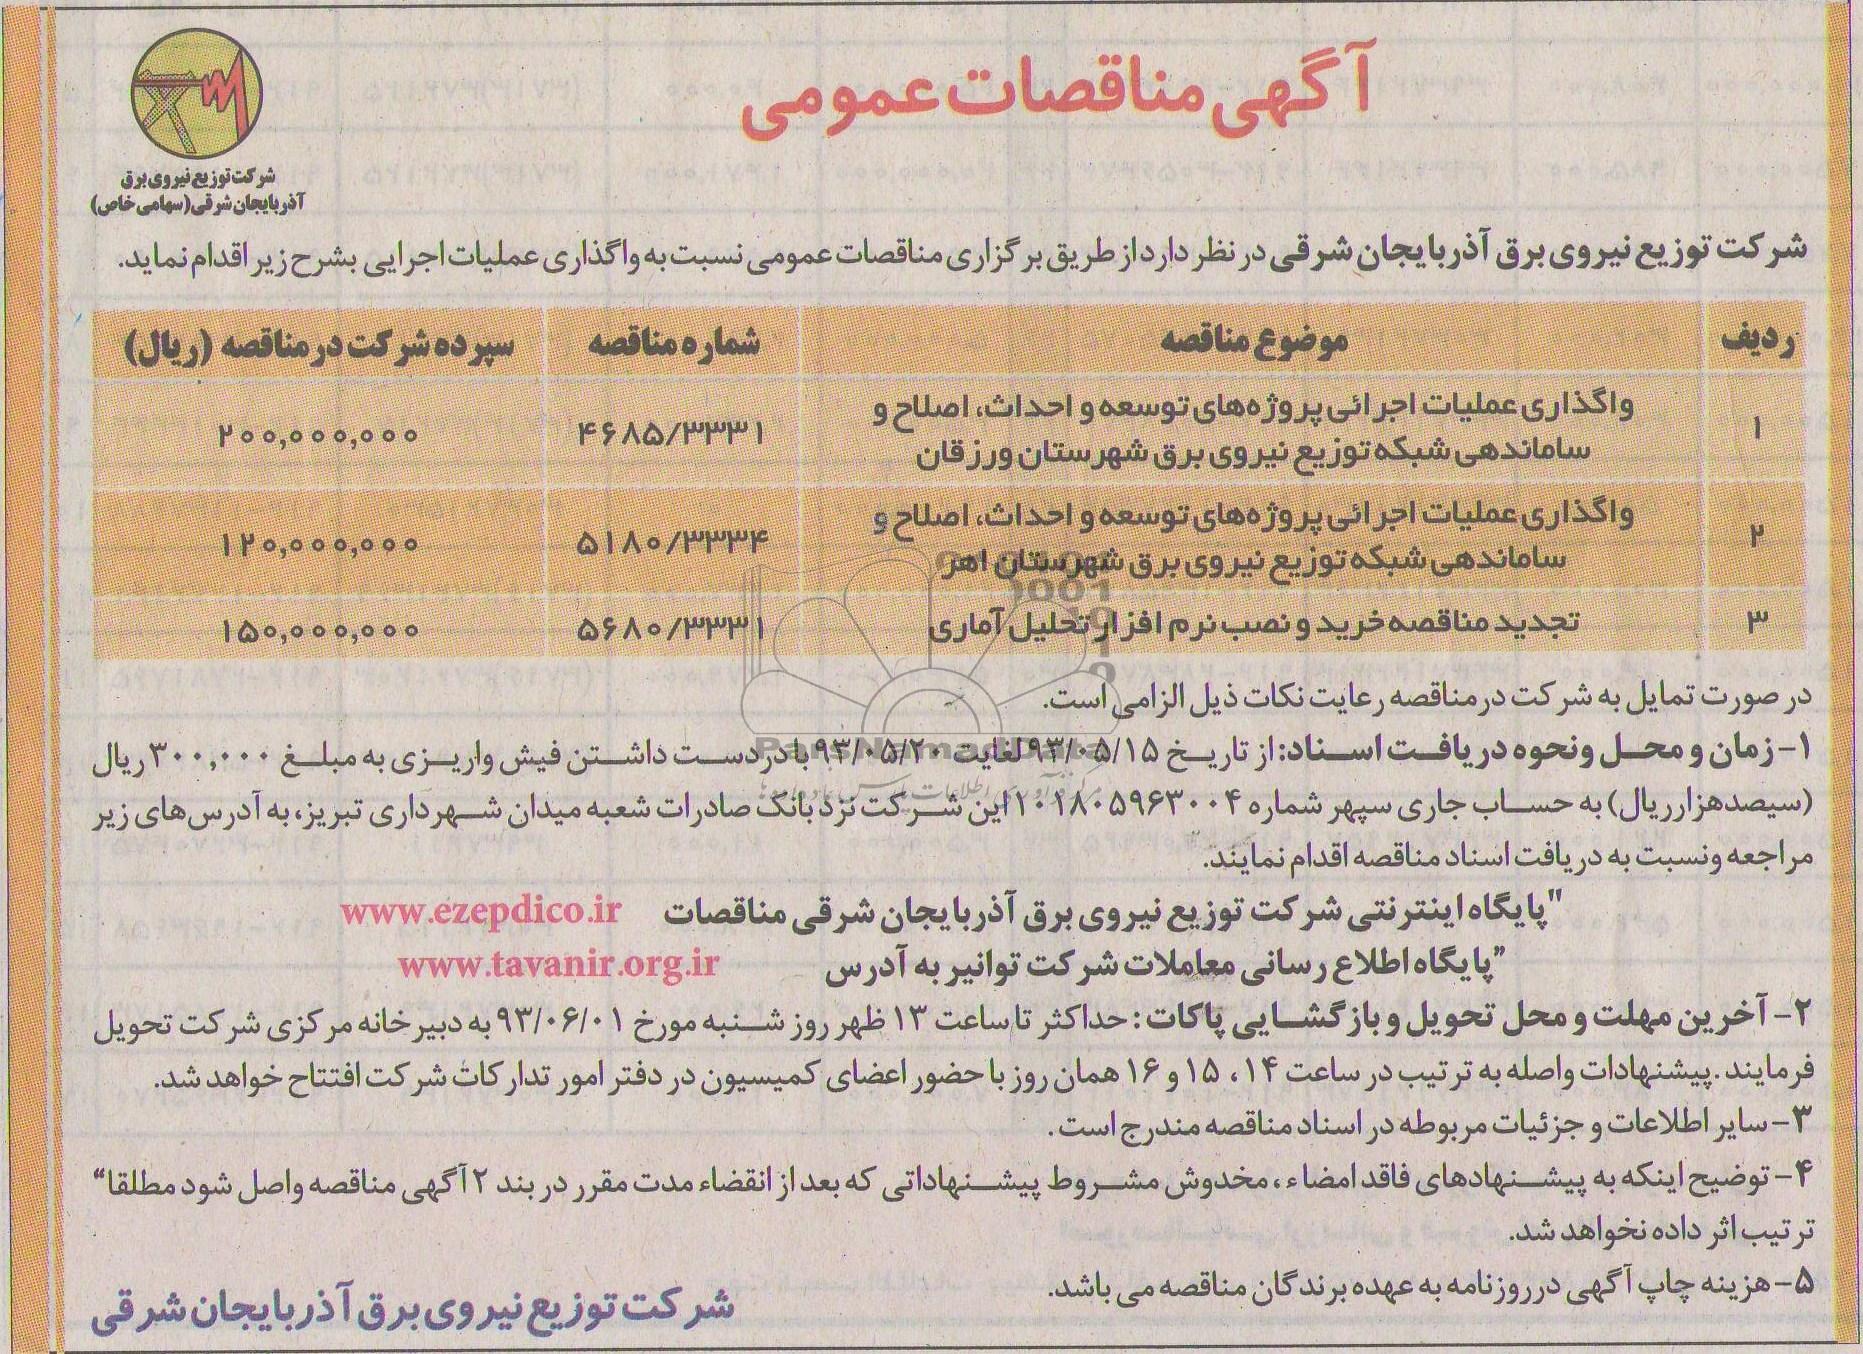 آگهی مناقصات عمومی
شرکت توزیع نیروی برق
آذربایجان شرقی (سهامی خاص)
شرکت توزیع نیروی برق آذربایجان شرقی در نظر دارد از طریق برگزاری مناقصات عمومی نسبت به واگذاری عملیات اجرایی بشرح زیر اقدام نماید.
ردیف موضوع مناقصه شماره مناقصه سپرده شرکت در مناقصه (ریال)
۱ واگذاری عملیات اجرائی پروژه‌های توسعه و احداث، اصلاح و
ساماندهی شبکه توزیع نیروی برق شهرستان ورزقان ۴۶۸۵/۳۳۳۱ ۲۰۰,۰۰۰,۰۰۰
۲ واگذاری عملیات اجرائی پروژه‌های توسعه و احداث، اصلاح و
ساماندهی شبکه توزیع نیروی برق شهرستان اهر ۵۱۸۰/۳۳۳۴ ۱۲۰,۰۰۰,۰۰۰
۳ تجدید مناقصه خرید و نصب نرم افزار تحلیل آماری ۵۶۸۰/۳۳۳۱ ۱۵۰,۰۰۰,۰۰۰
در صورت تمایل به شرکت در مناقصه رعایت نکات ذیل الزامی است.
۱- زمان و محل ونحوه دریافت اسناد: از تاریخ ۹۳/۰۵/۱۵ لغایت ۹۳/۰۵/۲۰ با در دست داشتن فیش واریزی به مبلغ ۳۰۰,۰۰۰ ریال
(سیصد هزار ریال) به حساب جاری سپهر شماره ۰۱۰۱۸۰۵۹۶۳۰۰۴ این شرکت نزد بانک صادرات شعبه میدان شهرداری تبریز، به آدرس‌های زیر
مراجعه ونسبت به دریافت اسناد مناقصه اقدام نمایند.
"پایگاه اینترنتی شرکت توزیع نیروی برق آذربایجان شرقی مناقصات www.ezepdico.ir
"پایگاه اطلاع رسانی معاملات شرکت توانیر به آدرس www.tavanir.org.ir
۲- آخرین مهلت و محل تحویل و بازگشایی پاکات: حداکثر تا ساعت ۱۳ ظهر روز شنبه مورخ ۹۳/۰۶/۰۱ به دبیرخانه مرکزی شرکت تحویل
فرمایند. پیشنهادات واصله به ترتیب در ساعت ۱۴، ۱۵ و ۱۶ همان روز با حضور اعضای کمیسیون در دفتر امور تدارکات شرکت افتتاح خواهد شد.
۳- سایر اطلاعات و جزئیات مربوطه در اسناد مناقصه مندرج است.
۴- توضیح اینکه به پیشنهادهای فاقد امضاء، مخدوش مشروط پیشنهاداتی که بعد از انقضاء مدت مقرر در بند ۲ آگهی مناقصه واصل شود مطلقا"
ترتیب اثر داده نخواهد شد.
۵- هزینه چاپ آگهی در روزنامه به عهده برندگان مناقصه می باشد.
شرکت توزیع نیروی برق آذربایجان شرقی